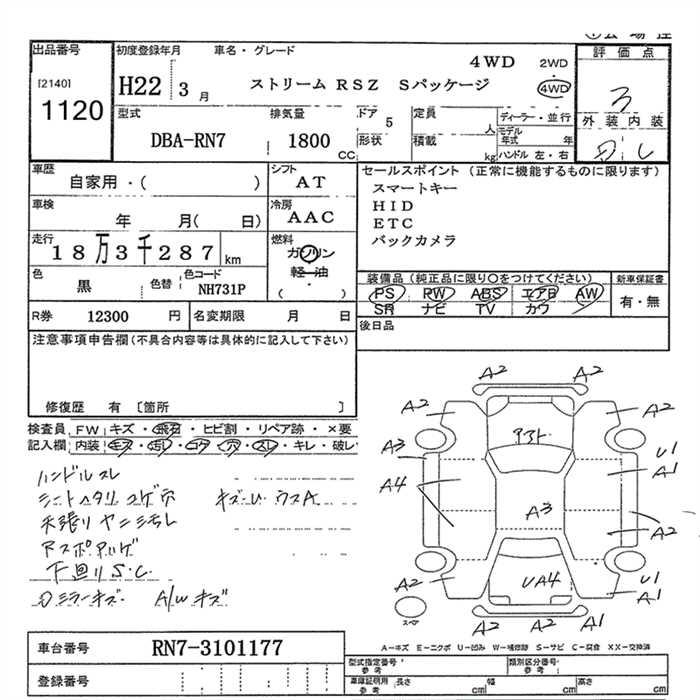 出品番号
[2140]
1120
初度登録年月
車名・グレード
H22
3 月
ストリーム RSZ Sパッケージ
4WD
2WD
4WD
評価点
3
外装 内装
型式
DBA-RN7
排気量
1800
CC
ドア
5
形状
定員
人
積載
kg
ディーラー・並行
モデル
年式
年
ハンドル 左・右
車歴
自家用・( )
シフト
AT
車検
年 月( 日)
冷房
AAC
走行
18万3千287 km
燃料
ガソリン
軽油
・
( )
色
黒
色替
色コード
NH731P
セールスポイント (正常に機能するものに限ります)
スマートキー
HID
ETC
バックカメラ
装備品 (純正品に限り〇をつけてください)
新車保証書
PS RW ABS エアB AW
SR ナビ TV カワ
有・無
R券
12300 円
名変期限
月 日
後日品
注意事項申告欄(不具合内容等は具体的に記入して下さい)
修復歴 有 〔箇所 〕
検査員 FW キズ・飛石・ヒビ割・リペア跡・×要
記入欄 内装 キズ・汚レ・コゲ・穴・スレ・キレ・破レ
ハンドルスレ
シートヘタリ コゲ穴 キズ・U ウスA
天張り ヤニヨゴレ
下廻りS.C
ミラーキズ A/Wキズ
A2
A2
A2
A2
A3
A4
A3
U1
A1
A2
UA4
A2
U1
A1
A2
A2
A1
スペア
車台番号
RN7-3101177
登録番号
A-キズ E-エクボ U-凹み W-補修跡 S-サビ C-腐食 XX-交換済
型式指定番号
参考
類別区分番号
参考
車庫証明用
参考
長さ cm
幅 cm
高さ cm